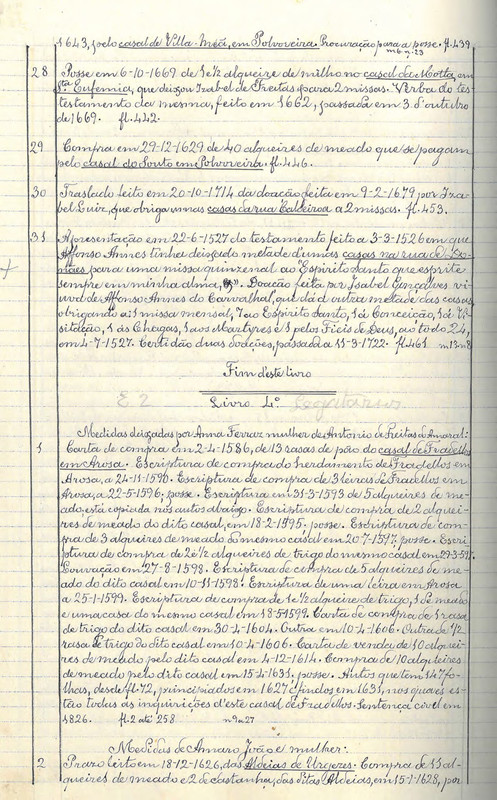 1643, pelo casal de Villa-Meã, em Polvoreira. Procuração para a posse. fl. 439,
m6. n. 23
28 Posse em 6-10-1669 de 1 e ½ alqueire de milho no casal da Motta, em
Stª. Eufemia, que deixou Izabel de Freitas para 2 missas. Verba do tes-
testamento da mesma, feito em 1662, passada em 3 d'outubro
de 1669. fl. 442.
29 Compra em 29-12-1629 de 40 alqueires de meado que se pagam
pelo casal do Souto em Polvoreira. fl. 446.
30 Traslado feito em 20-10-1714 da doação feita em 9-2-1679, por Iza-
bel Luiz, que obriga umas casas da rua Caldeirôa a 2 missas. fl. 453.
31 Apresentação em 22-6-1527 do testamento feito a 3-3-1526 em que
Affonso Annes tinha deixado metade d'umas casas na rua de Do-
nães para uma missa quinzenal ao Espirito Santo que esprite
sempre em minha alma, Doação feita por Isabel Gonçalves vi-
uva de Affonso Annes do Carvalhal, que dá a outra metade das casas
obrigando a 1 missa mensal, 7 ao Espirito Santo, 1 á Conceição, 1 á Vi-
sitação, 1 ás Chagas, 1 aos Martyres e 1 pelos Fieis de Deus, ao todo 24,
em 4-7-1527. Certidão duas doações, passada a 11-3-1722. fl. 461 m 13 n 8
Fim d'este livro
E 2 Livro 4.º Legatarios
Medidas deixadas por Anna Ferraz mulher de Antonio de Freitas do Amaral:
1 Carta de compra em 2-4-1586, de 13 rasas de pão do casal de Fradellos
em Arosa. Escriptura de compra do herdamento de Fradellos em
Arosa, a 24-11-1590. Escriptura de compra de 3 leiras de Fradellos em
Arosa, a 22-5-1596, posse. Escriptura em 31-3-1593 de 5 alqueires de me-
ado, está copiada nos autos abaixo. Escriptura de compra de 2 alquei-
res de meado do dito casal, em 18-2-1595. posse. Escriptura de com-
pra de 3 alqueires de meado do mesmo casal em 20-7-1597, posse. Escri-
ptura de compra de 2 e ½ alqueires de trigo do mesmo casal em 29-3-597.
Louvação em 27-8-1598. Escriptura de compra de 5 alqueires de me-
ado do dito casal em 10-11-1598. Escriptura de uma leira em Arosa
a 25-1-1599. Escriptura de compra de 1 e ½ alqueire de trigo, 1 de meado
e uma casa do mesmo casal em 18-5-1599. Carta de compra de 1 rasa
de trigo do dito casal em 30-4-1604. Outra em 10-4-1606. Outra de ½
rasa de trigo do dito casal em 10-4-1606. Carta de venda de 10 alquei-
res de meado pelo dito casal em 4-12-1614. Compra de 10 alqueires
de meado pelo dito casal em 15-4-1631, posse. Autos que tem 147 fo-
lhas, desde fl. 72, principiados em 1627 e findos em 1631, nos quaes es-
tão todas as inquirições d'este casal de Fradellos. Sentença civel em
1826. fl. 2 até 258 n 9 n 27
Medidas de Amaro João e mulher:
2 Prazo feito em 18-12-1626, das Aldeias de Urgezes. Compra de 11 al-
queires de meado e 2 de castanha, das ditas Aldeias, em 15-1-1628, por